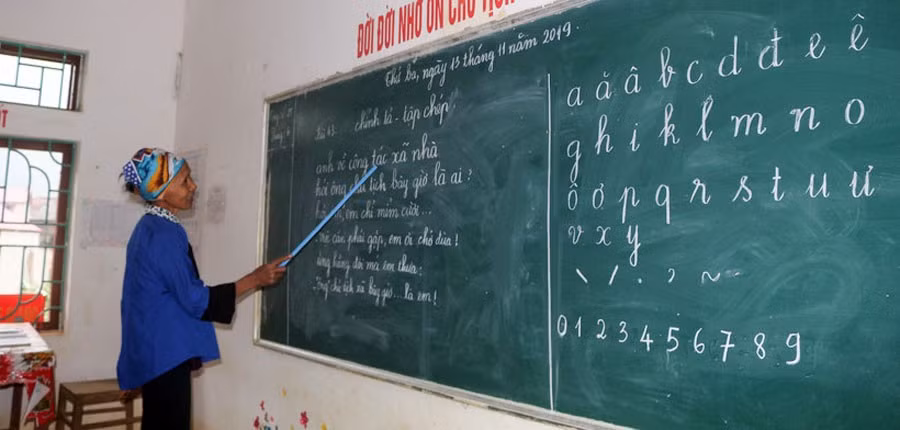 ĐỜI ĐỜI NHỚ ƠN CHỦ TỊCH
Thứ ba, ngày 13 tháng 11 năm 2019.
chính tả - tập chép
anh về công tác xã nhà
hỏi ông chủ tịch bây giờ là ai?
em chỉ mỉm cười...
cần phải gặp, em ơi chớ đùa!
ửng hồng đôi má em thưa:
chủ tịch xã bây giờ... là em!
a ă â b c d đ e ê
g h i k l m n o
ô ơ p q r s t u ư
v x y
\ / . ? ~
0 1 2 3 4 5 6 7 8 9